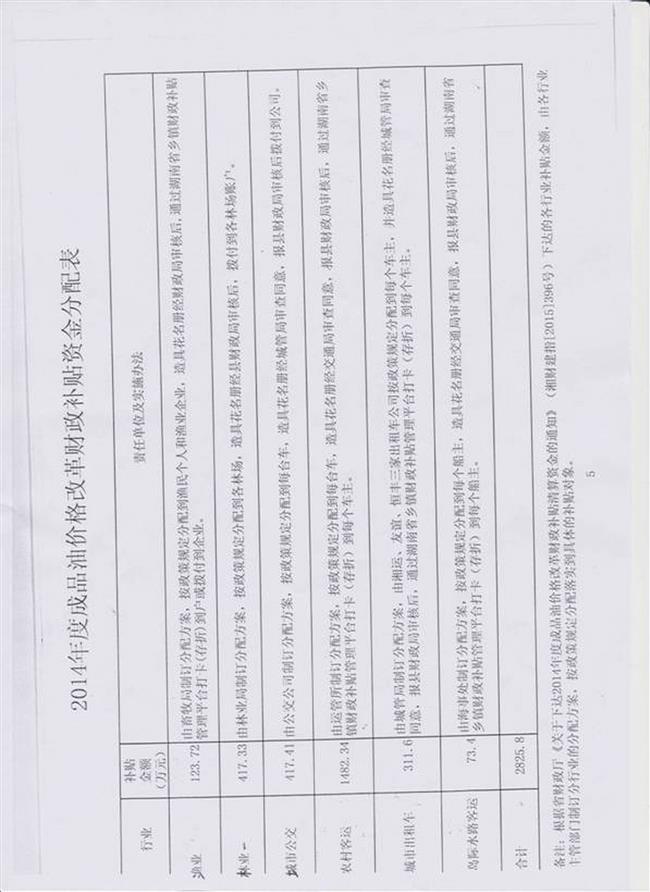 2014年度成品油价格改革财政补贴资金分配表
行业
补贴
金额
(万元)
责任单位及实施办法
渔业
123.72
由畜牧局制订分配方案，按政策规定分配到渔民个人和渔业企业，造具花名册经财政局审核后，通过湖南省乡镇财政补贴
管理平台打卡(存折)到户或拨付到企业。
林业
417.33
由林业局制订分配方案，按政策规定分配到各林场，造具花名册经县财政局审核后，拨付到各林场账户。
城市公交
417.41
由公交公司制订分配方案，按政策规定分配到每台车，造具花名册经城管局审查同意，报县财政局审核后拨付到公司。
农村客运
1482.34
由运管所制订分配方案，按政策规定分配到每台车，造具花名册经交通局审查同意，报县财政局审核后，通过湖南省乡
镇财政补贴管理平台打卡（存折）到每个车主。
城市出租车
311.6
由城管局制订分配方案，由湘运、友谊、恒丰三家出租车公司按政策规定分配到每个车主，并造具花名册经城管局审查
同意，报县财政局审核后，通过湖南省乡镇财政补贴管理平台打卡（存折）到每个车主。
岛际水路客运
73.4
由海事处制订分配方案，按政策规定分配到每个船主，造具花名册经交通局审查同意，报县财政局审核后，通过湖南省
乡镇财政补贴管理平台打卡（存折）到每个船主。
合计
2825.8
备注：根据省财政厅《关于下达2014年度成品油价格改革财政补贴清算资金的通知》（湘财建指[2015]396号）下达的各行业补贴金额，由各行业
主管部门制订分行业的分配方案，按政策规定分配落实到具体的补贴对象。
5